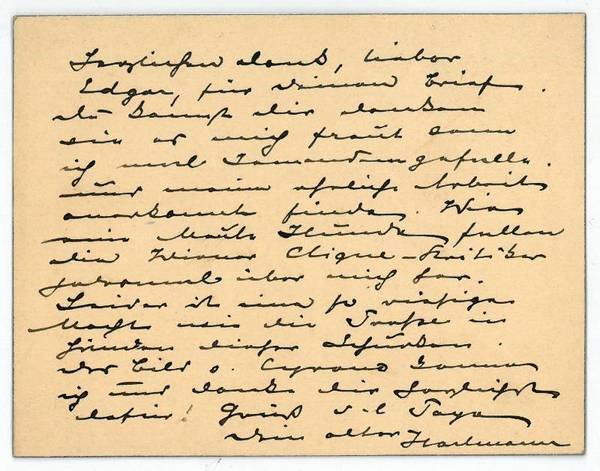 Herzlichen Dank, lieber
Edgar, für deinen Brief.
Du kannst dir denken
wie es mich freut wenn
ich mal Jemandem gefalle.
und meine ehrliche Arbeit
anerkannt finde. Wie
eine Meute Hunde fallen
die Wiener Clique-Kritiker
jedesmal über mich her.
Leider ist eine so wichtige
Macht wie die Presse in
Händen dieser Schurken.
Das Bild v. Cyrano kenne
ich und danke dir herzlichst
dafür! Gruß
Dein alter